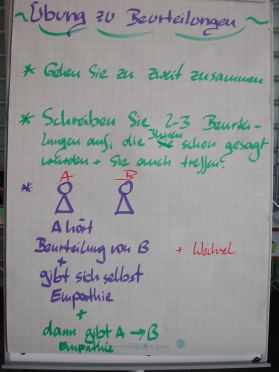 Übung zu Beurteilungen
* Gehen Sie zu zweit zusammen
* Schreiben Sie 2-3 Beurtei-
lungen auf, die Ihnen Sie schon gesagt
wurden + Sie auch treffen.
* A B
A hört
Beurteilung von B + Wechsel
+
gibt sich selbst
Empathie
+
dann gibt A → B
Empathie